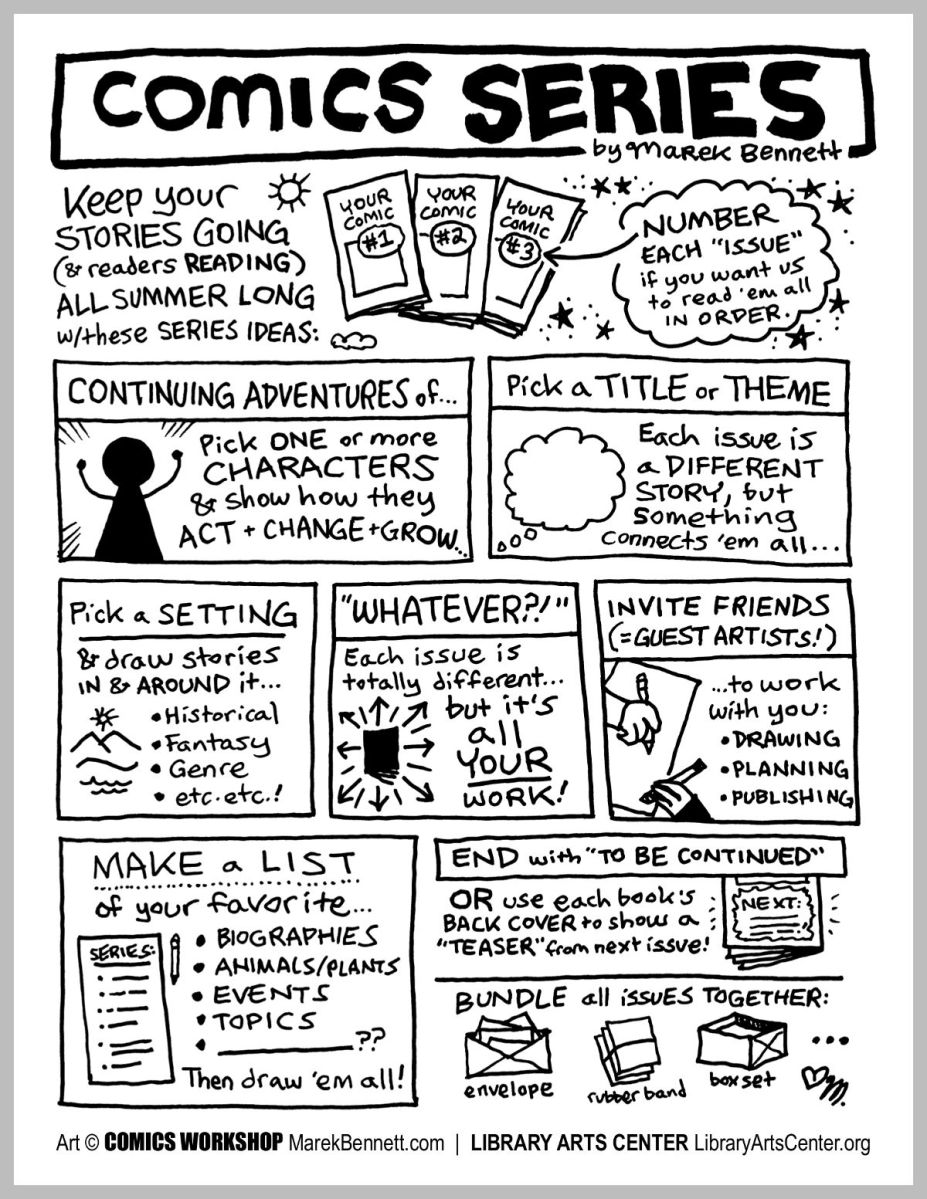 COMICS SERIES
by MAREK Bennett
Keep your
STORIES GOING
(& readers READING)
ALL SUMMER LONG
w/these SERIES IDEAS:
YOUR
COMIC
#1
YOUR
COMIC
#2
YOUR
COMIC
#3
NUMBER
EACH "ISSUE"
if you want us
to read 'em all
IN ORDER.
CONTINUING ADVENTURES of...
Pick ONE or more
CHARACTERS
& show how they
ACT + CHANGE + GROW...
Pick a TITLE or THEME
Each issue is
a DIFFERENT
STORY, but
Something
connects 'em all...
Pick a SETTING
& draw stories
IN & AROUND it...
• Historical
• Fantasy
• Genre
• etc.etc.!
"WHATEVER?!"
Each issue is
totally different...
but it's
all
YOUR
WORK!
INVITE FRIENDS
(=GUEST ARTISTS!)
...to work
with you:
• DRAWING
• PLANNING
• PUBLISHING
MAKE a LIST
of your favorite...
SERIES:
• BIOGRAPHIES
• ANIMALS/PLANTS
• EVENTS
• TOPICS
• __________??
Then draw 'em all!
END with "TO BE CONTINUED"
OR use each book's
BACK COVER to show a
"TEASER" from next issue!
NEXT:
BUNDLE all issues TOGETHER:
envelope
rubber band
box set
...
Art © COMICS WORKSHOP MarekBennett.com | LIBRARY ARTS CENTER LibraryArtsCenter.org